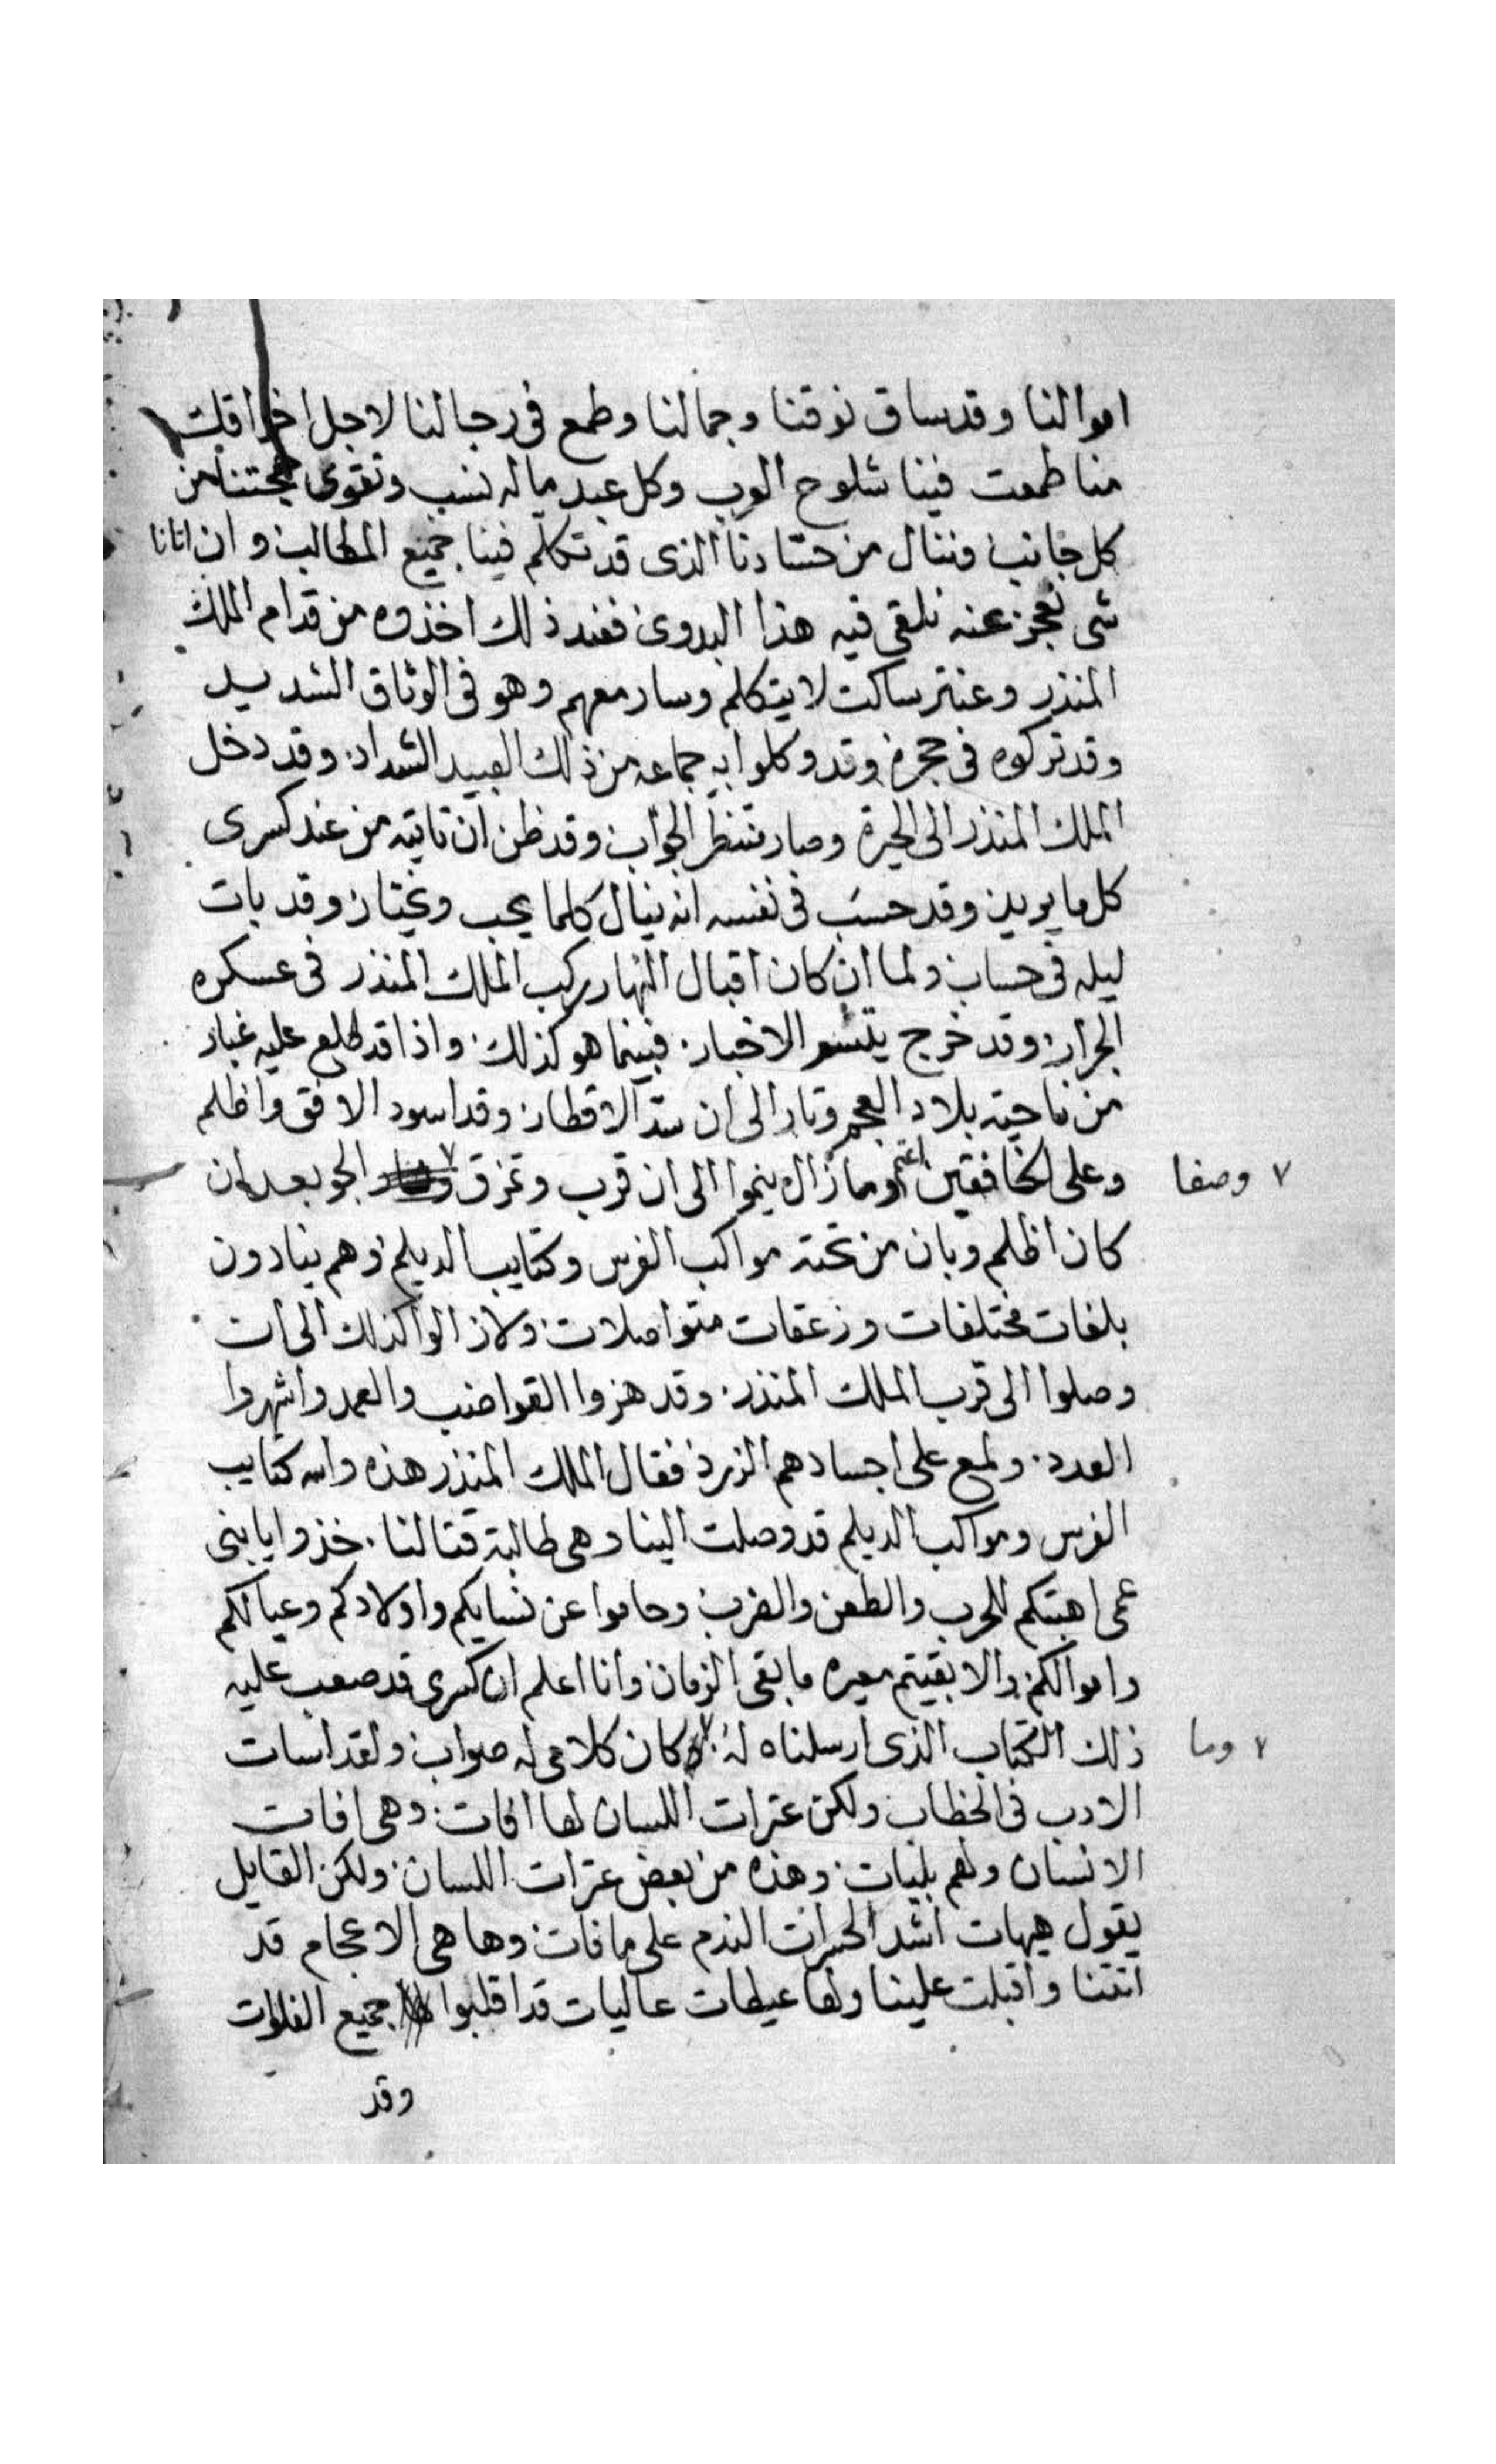 اموالنا وقد ساق نوقنا وجمالنا وطمع فى رجالنا لاجل اخراقك
منا طمعت فينا شلوح العرب وكل عبد ماله نسب وتقوى حجتنا من
كل جانب وننال من حسادنا الذى قد تكلم فينا جميع المطالب وان اتانا
شى نعجز عنه نلقى فيه هذا البدوى فعند ذلك اخذوه من قدام الملك
المنذر وعنتر ساكت لا يتكلم وسار معهم وهو فى الوثاق الشديد
وقد تركوه فى حجره وقد وكلوا به جماعه من ذلك العبيد الشداد وقد دخل
الملك المنذر الى الحيرة وصار ينتظر الجواب وقد ظن ان تاتيه من عند كسرى
كل ما يريد وقد حسب فى نفسه انه ينال كلما يحب ويختار وقد بات
ليله فى حساب ولما ان كان اقبال النهار ركب الملك المنذر فى عسكره
الجرار وقد خرج الاخبار فبينما هو كذلك واذا قد طلع عليه غبار
من ناحية بلاد العجم وثار الى ان سد الاقطار وقد اسود الافق واظلم
وعلى الخافقين اعتم وما زال ينموا الى ان قرب وتمزق ٧ الجو بعد ان
٧ وصفا
كان اظلم وبان من تحته مواكب الفرس وكتايب الديلم وهم ينادون
بلغات مختلفات وزعقات متواصلات ولا زالوا كذلك الى ان
وصلوا الى قرب الملك المنذر وقد هزوا القواضب والعمد واشهروا
العدد ولمع على اجسادهم الزرد فقال الملك المنذر هذه والله كتايب
الفرس ومواكب الديلم قد وصلت الينا وهى طالبة قتالنا خذوا يا بنى
عمى اهبتكم للحرب والطعن والضرب وحاموا عن نسايكم واولادكم وعيالكم
واموالكم والا بقيتم معيره ما بقى الزمان وانا اعلم ان كسرى قد صعب عليه
ذلك الكتاب الذى ارسلناه له ٧ كان كلامى له صواب ولقد اسات
٧ وما
الادب فى الخطاب ولكن عترات اللسان لها افات وهى افات
الانسان ولهم بليات وهذه من بعض عترات اللسان ولكن القايل
يقول هيهات اشد الحسرات الندم على ما فات وها هى الاعجام قد
اتتنا واقبلت علينا ولها عيطات عاليات قد اقلبوا جميع الفلوات
وقد